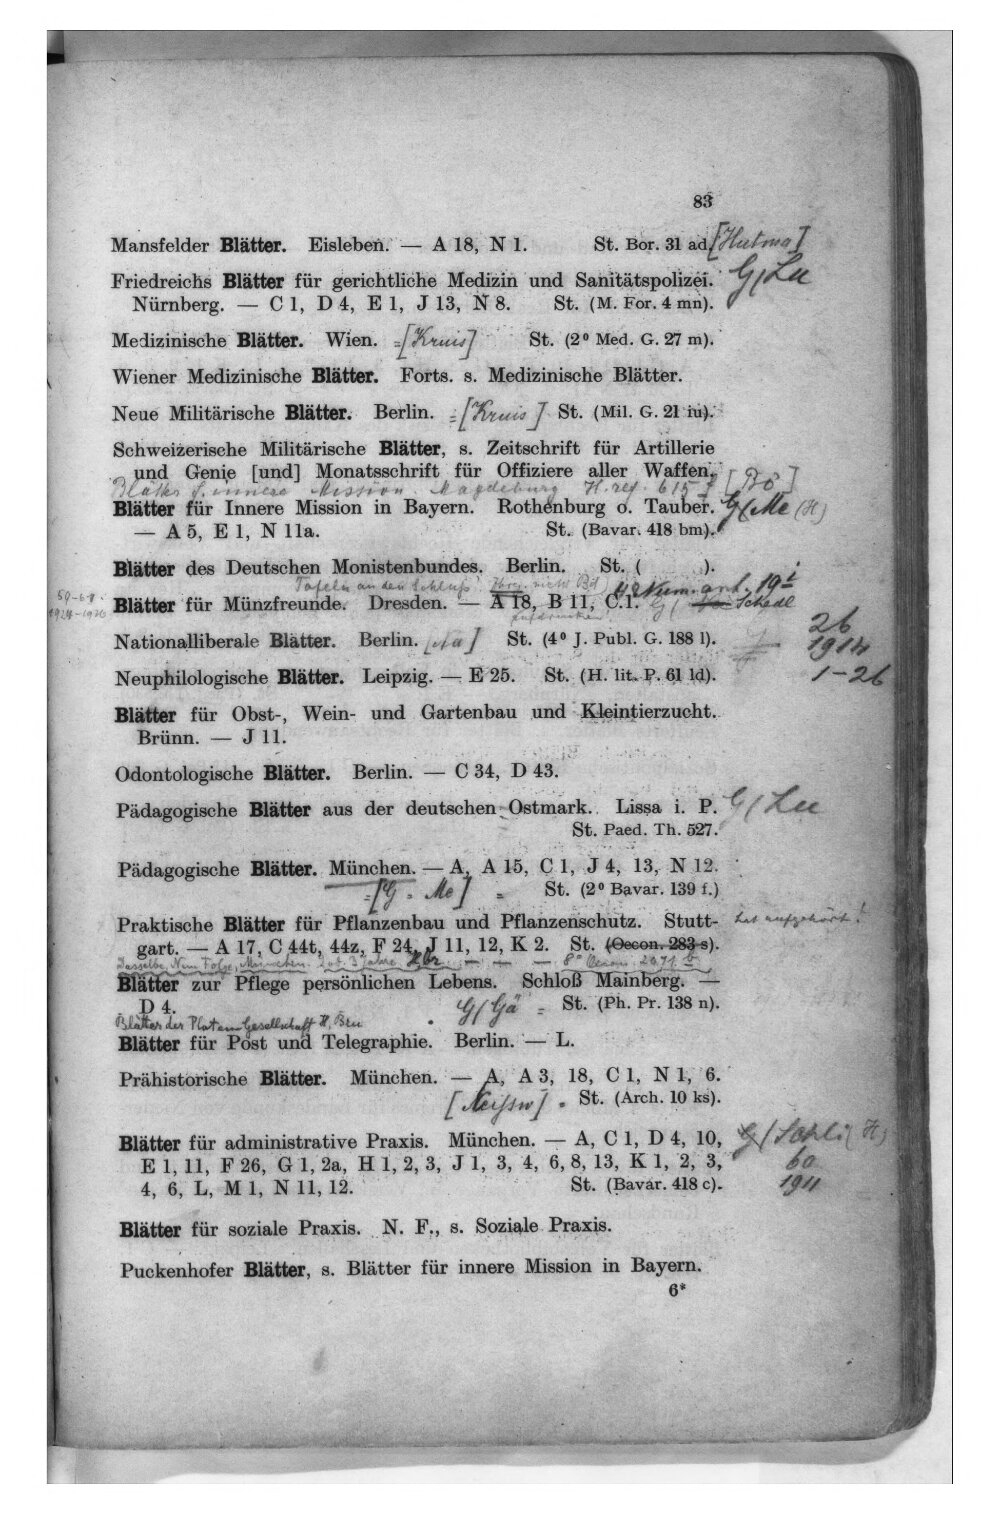 83
Mansfelder Blätter. Eisleben. — A 18, N 1. St. Bor. 31 ad.
G/Lu
Friedreichs Blätter für gerichtliche Medizin und Sanitätspolizei.
Nürnberg. — C 1, D 4, E 1, J 13, N 8. St. (M. For. 4 mn).
Medizinische Blätter. Wien. =[Kruis] St. (2⁰ Med. G. 27 m).
Wiener Medizinische Blätter. Forts. s. Medizinische Blätter.
Neue Militärische Blätter. Berlin. =[Kruis] St. (Mil. G. 21 iu).
Schweizerische Militärische Blätter, s. Zeitschrift für Artillerie
und Genie [und] Monatsschrift für Offiziere aller Waffen.
Blätter f. innere Mission Magdeburg H. ref. 615 [Bö]
Blätter für Innere Mission in Bayern. Rothenburg o. Tauber. G/Me (H)
— A 5, E 1, N 11a. St. (Bavar. 418 bm).
Blätter des Deutschen Monistenbundes. Berlin. St. ( ).
Tafeln an den Schluß! 4° Num. ant. 19
59-68
1924-1926
Blätter für Münzfreunde. Dresden. — A 18, B 11, C.1. G/ Schedl
Nationalliberale Blätter. Berlin. St. (4⁰ J. Publ. G. 188 l).
26
1914
1-26
Neuphilologische Blätter. Leipzig. — E 25. St. (H. lit. P. 61 ld).
Blätter für Obst-, Wein- und Gartenbau und Kleintierzucht.
Brünn. — J 11.
Odontologische Blätter. Berlin. — C 34, D 43.
Pädagogische Blätter aus der deutschen Ostmark. Lissa i. P. G/Lu
St. Paed. Th. 527.
Pädagogische Blätter. München. — A, A 15, C 1, J 4, 13, N 12.
=[G = Me] = St. (2⁰ Bavar. 139 f.)
Praktische Blätter für Pflanzenbau und Pflanzenschutz. Stutt- hat aufgehört!
gart. — A 17, C 44t, 44z, F 24, J 11, 12, K 2. St. (Oecon. 283 s).
Dasselbe. Neue Folge, München. — — — 8° Oecon. 2071
Blätter zur Pflege persönlichen Lebens. Schloß Mainberg. —
D 4. G/Gä = St. (Ph. Pr. 138 n).
Blätter der Platen Gesellschaft H.
Blätter für Post und Telegraphie. Berlin. — L.
Prähistorische Blätter. München. — A, A 3, 18, C 1, N 1, 6.
St. (Arch. 10 ks).
Blätter für administrative Praxis. München. — A, C 1, D 4, 10, G/Schli (H)
E 1, 11, F 26, G 1, 2a, H 1, 2, 3, J 1, 3, 4, 6, 8, 13, K 1, 2, 3, 60
4, 6, L, M 1, N 11, 12. St. (Bavar. 418 c). 1911
Blätter für soziale Praxis. N. F., s. Soziale Praxis.
Puckenhofer Blätter, s. Blätter für innere Mission in Bayern.
6*